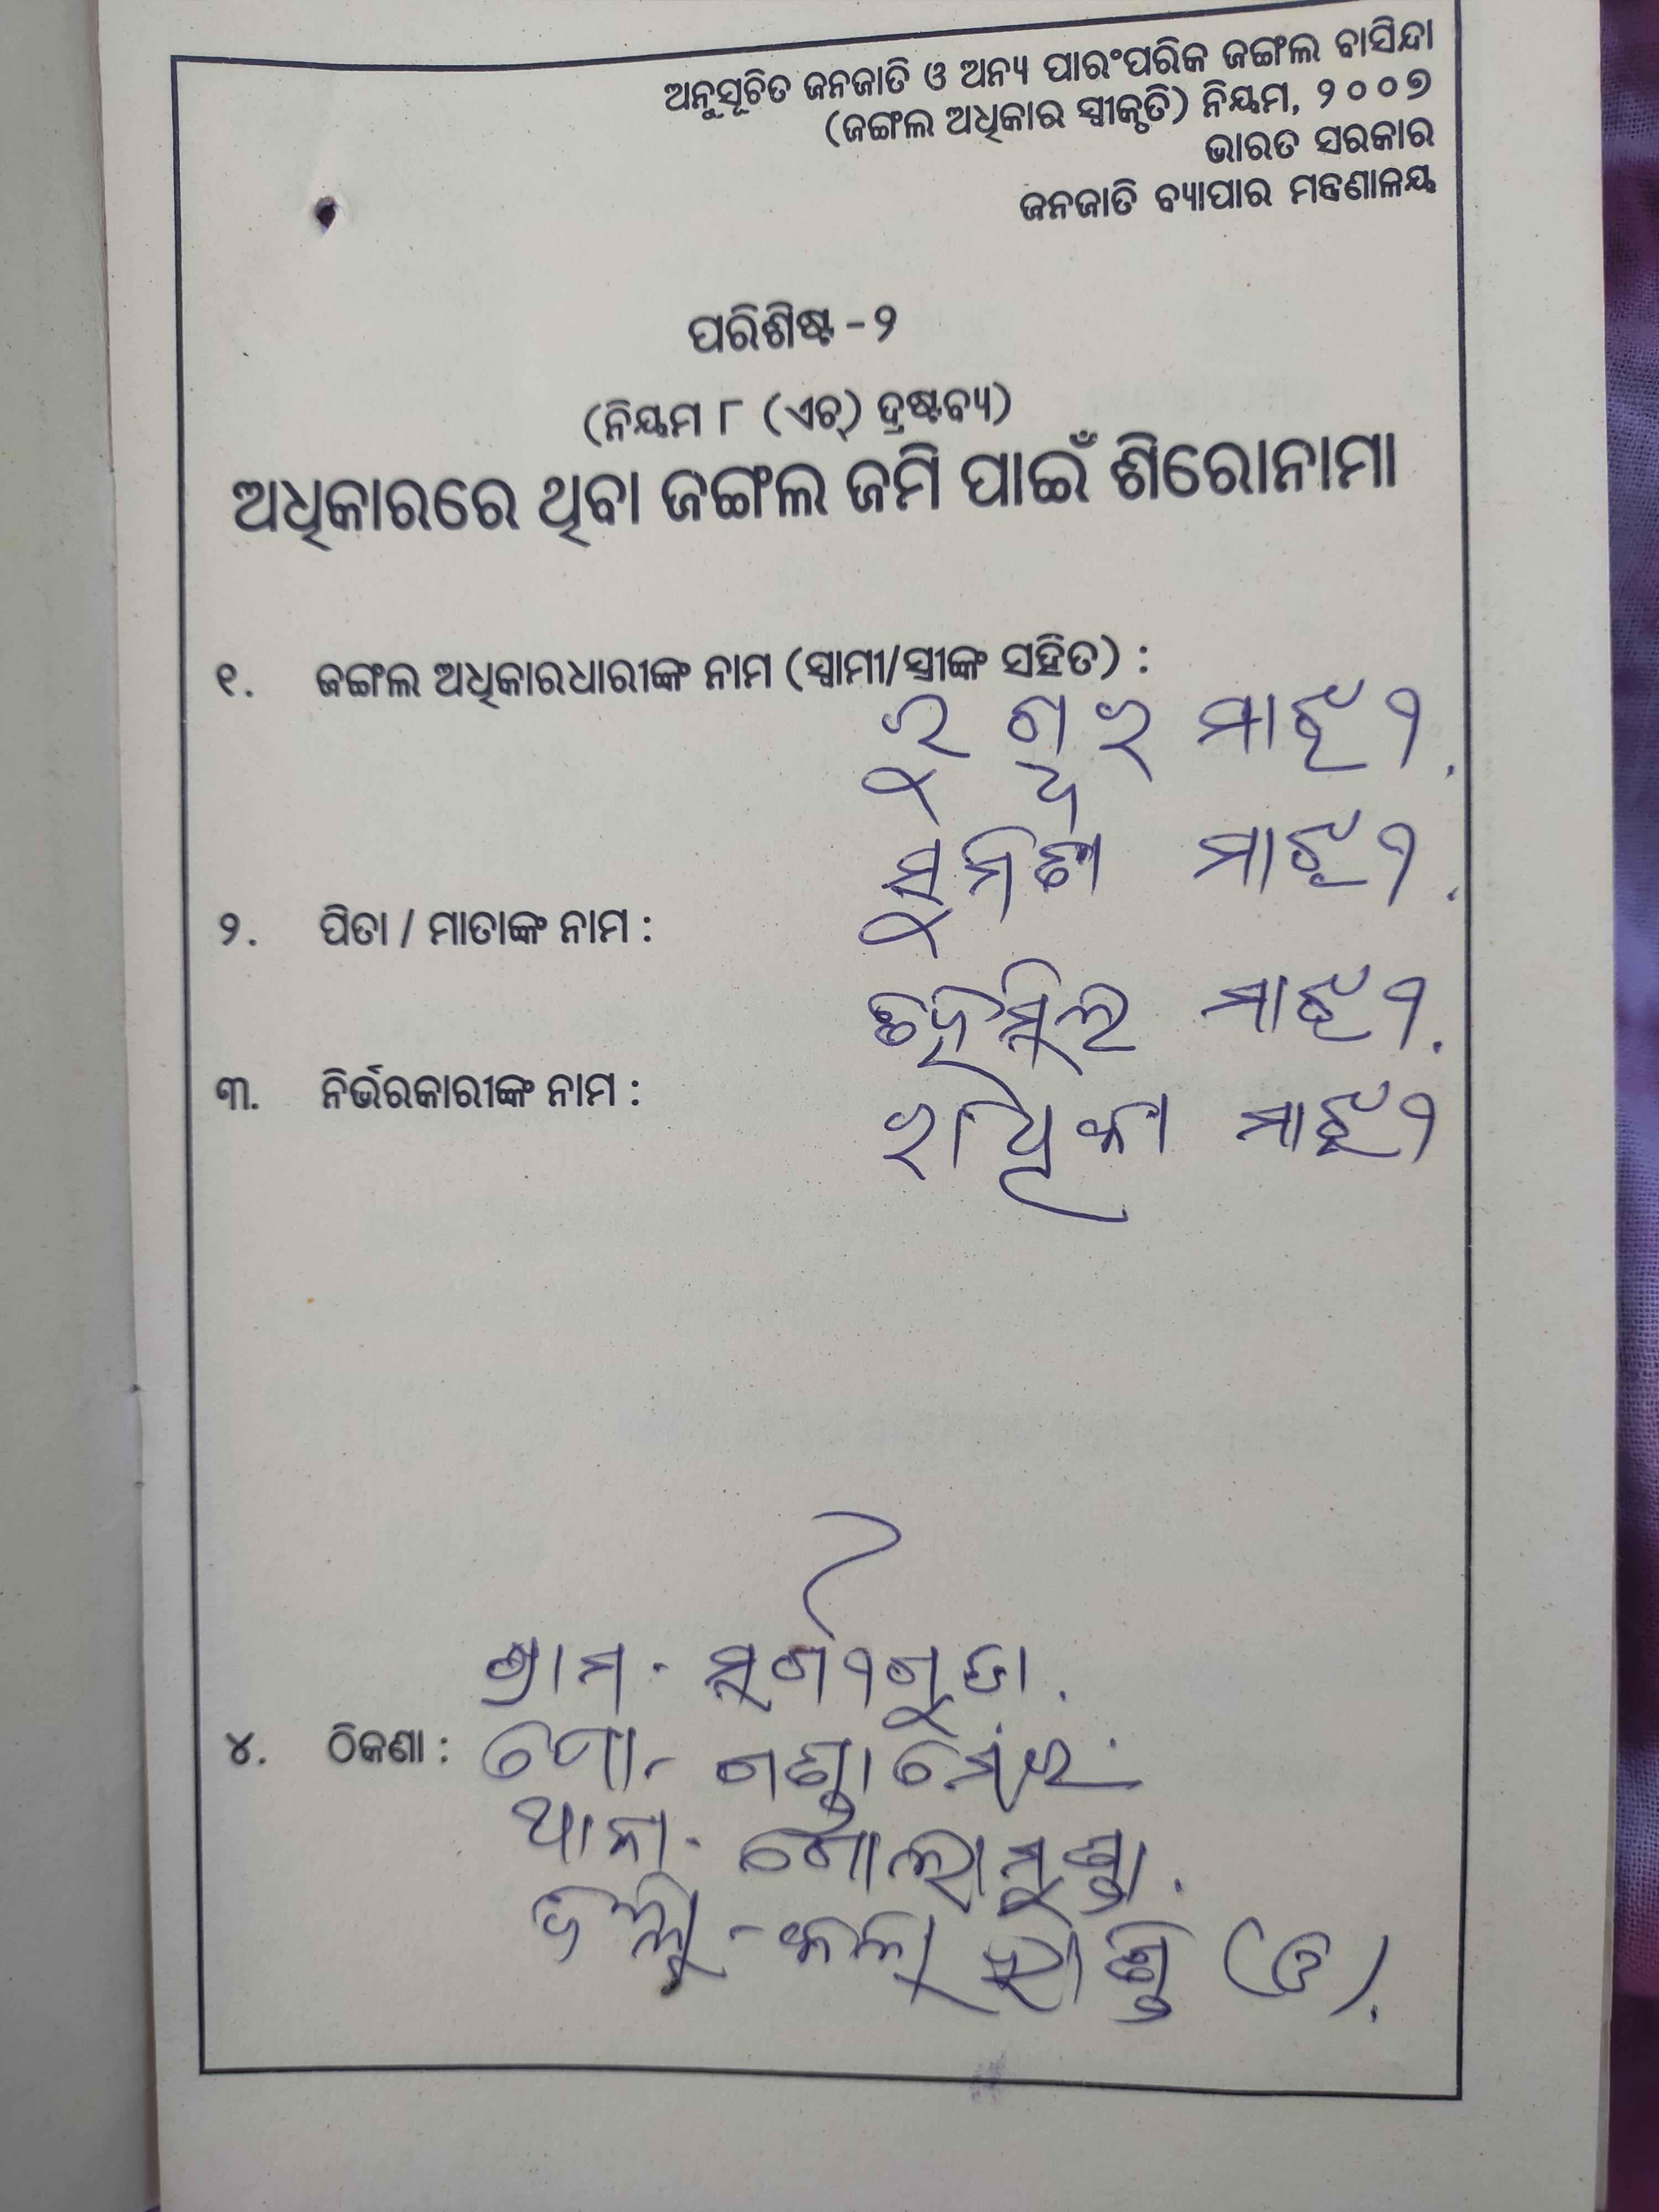 ଅନୁସୂଚିତ ଜନଜାତି ଓ ଅନ୍ୟ ପାରଂପରିକ ଜଙ୍ଗଲ ବାସିନ୍ଦା
(ଜଙ୍ଗଲ ଅଧିକାର ସ୍ୱୀକୃତି) ନିୟମ, ୨୦୦୭
ଭାରତ ସରକାର
ଜନଜାତି ବ୍ୟାପାର ମନ୍ତ୍ରଣାଳୟ
ପରିଶିଷ୍ଟ -୨
(ନିୟମ ୮ (ଏଚ୍) ଦ୍ରଷ୍ଟବ୍ୟ)
ଅଧିକାରରେ ଥିବା ଜଙ୍ଗଲ ଜମି ପାଇଁ ଶିରୋନାମା
୧. ଜଙ୍ଗଲ ଅଧିକାରଧାରୀଙ୍କ ନାମ (ସ୍ୱାମୀ/ସ୍ତ୍ରୀଙ୍କ ସହିତ) :
ମାଝୀ.
ମାଝୀ.
୨. ପିତା / ମାତାଙ୍କ ନାମ :
ମାଝୀ.
୩. ନିର୍ଭରକାରୀଙ୍କ ନାମ :
ରାଧିକା ମାଝୀ
ଗ୍ରାମ-
୪. ଠିକଣା : ପୋ-
ଥାନା- ଗୋଲାମୁଣ୍ଡା.
ଜିଲ୍ଲା - କଳାହାଣ୍ଡି (ଓ).